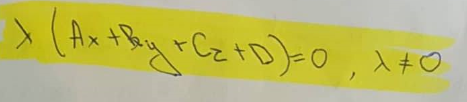 λ (Ax+By+Cz+D)=0 , λ≠0